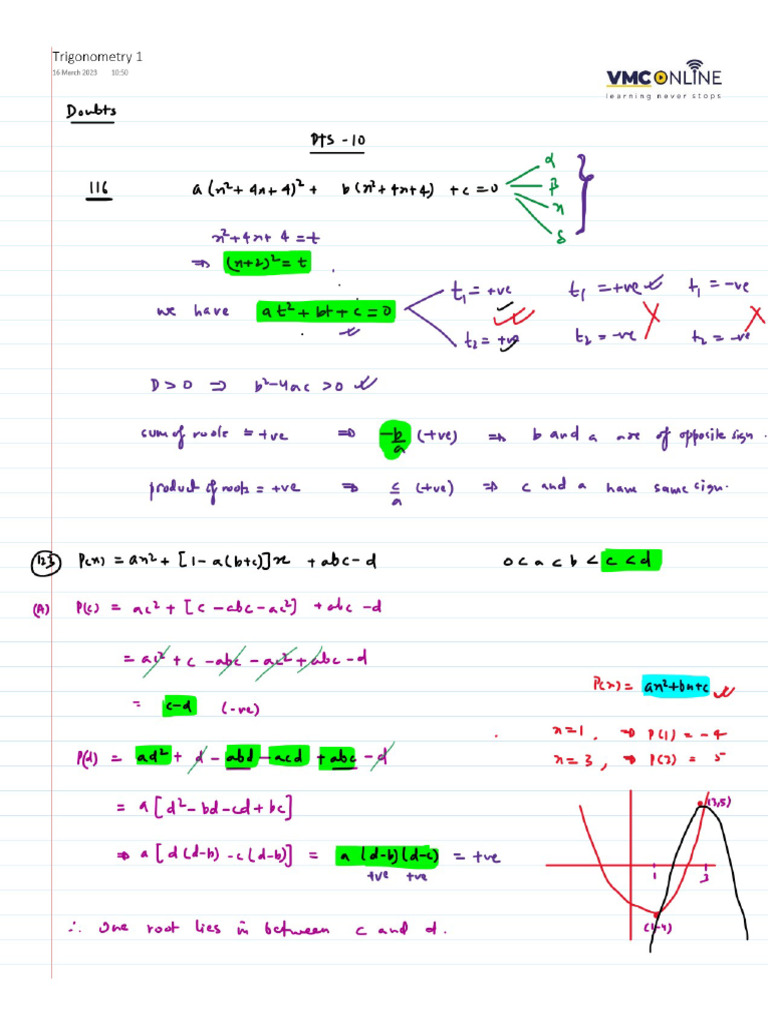 Trigonometry 1
16 March 2023 10:50
VMC ONLINE
learning never stops
Doubts
DTS -10
116 a(x²+4x+4)² + b(x²+4x+4) +c=0
α
β
γ
δ
x²+4x+4=t
⇒ (x+2)²=t
we have at²+bt+c=0
t₁=+ve t₁=+ve t₁=-ve
t₂=+ve t₂=-ve t₂=-ve
D>0 ⇒ b²-4ac>0
sum of roots = +ve ⇒ -b/a (+ve) ⇒ b and a are of opposite sign.
product of roots = +ve ⇒ c/a (+ve) ⇒ c and a have same sign.
123 P(x) = ax²+[1-a(b+c)]x +abc-d 0<a<b<c<d
(A) P(c) = ac²+[c-abc-ac²] +abc-d
= ac²+c-abc-ac²+abc-d
= c-d (-ve)
P(x) = ax²+bx+c
x=1, ⇒ P(1) = -4
x=3, ⇒ P(3) = 5
P(d) = ad²+d-abd-acd+abc-d
= a[d²-bd-cd+bc]
⇒ a[d(d-b)-c(d-b)] = a(d-b)(d-c) = +ve
+ve +ve
(3,5)
1 3
(1,-4)
∴ One root lies in between c and d.